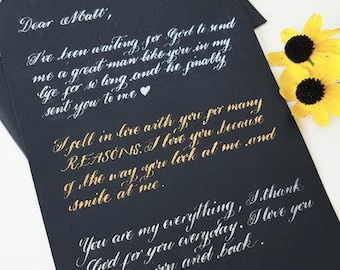 Dear Matt,
I've been waiting for God to send
me a great man like you in my
life for so long and he finally
sent you to me ♥
I fell in love with you for many
REASONS. I love you because
of the way you look at me and
smile at me.
You are my everything, I thank
God for you everyday. I love you
and back.